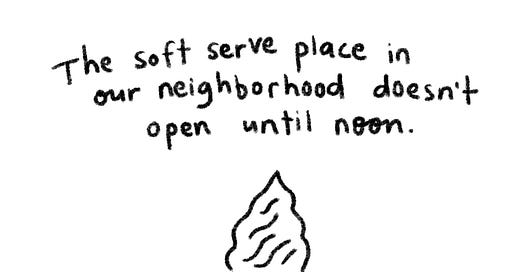 The soft serve place in
our neighborhood doesn't
open until noon.